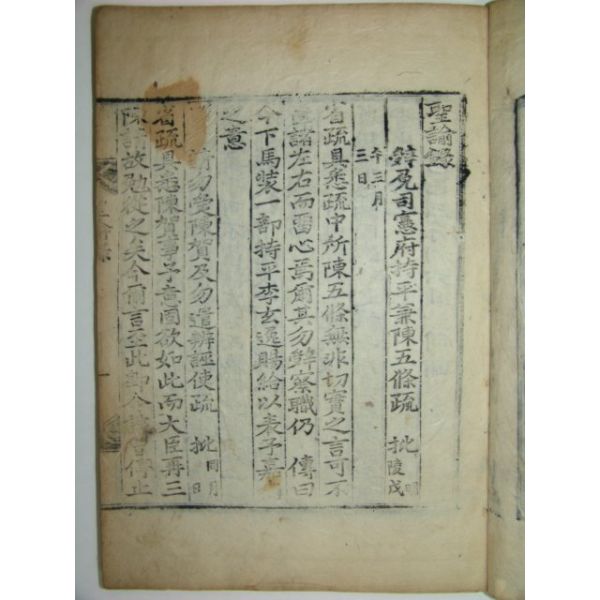 聖諭錄
辭免司憲府持平兼陳五條疏 批 明陵戊
午三月
三日
省疏具悉疏中所陳五條無非切實之言可不
諸左右而留心焉爾其勿辭察職仍 傳曰
今下馬裝一部持平李玄逸賜給以表予嘉
之意
請勿受陳賀及勿遣辨誣使疏 批 同月 日
省疏具悉陳賀事予意固欲如此而大臣再三
陳請故勉從之矣今爾言至此卽令 傳止